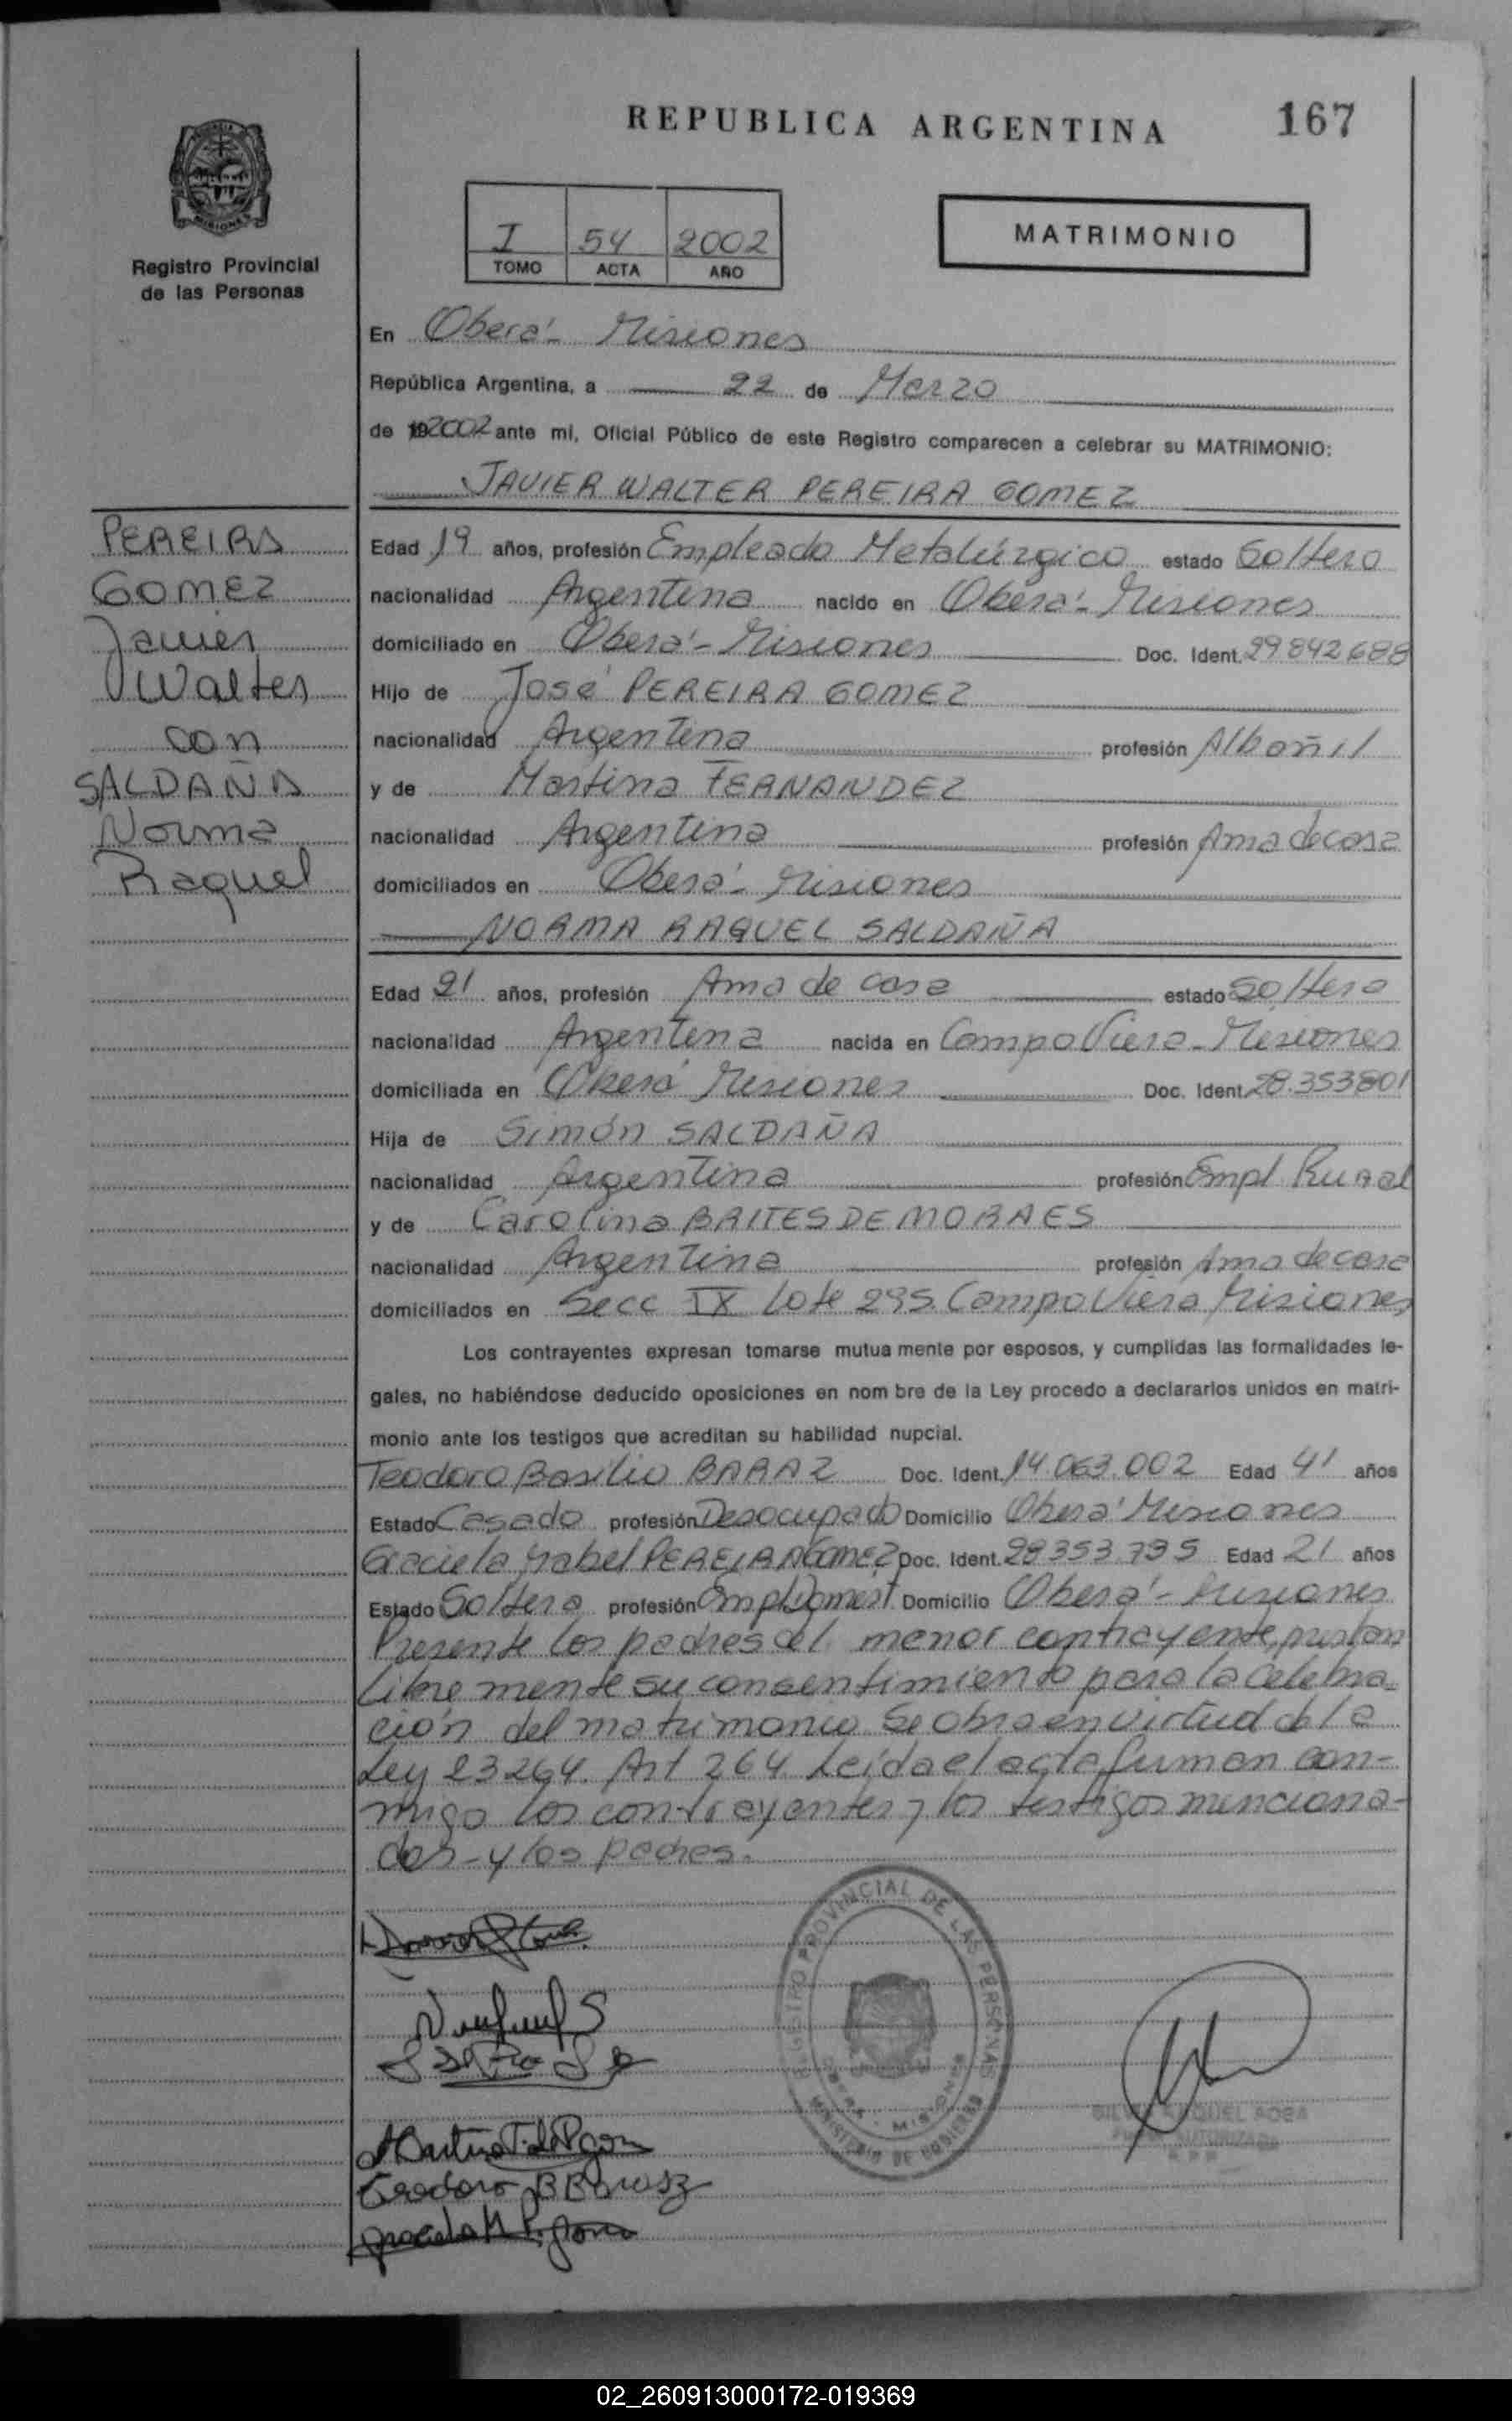 REPUBLICA ARGENTINA
167
Registro Provincial
de las Personas
I 54 2002
TOMO ACTA AÑO
MATRIMONIO
En Oberá - Misiones
República Argentina, a 22 de Marzo
de 2002 ante mi, Oficial Público de este Registro comparecen a celebrar su MATRIMONIO:
JAVIER WALTER PEREIRA GOMEZ
PEREIRA
GOMEZ
Javier
Walter
con
SALDAÑA
Norma
Raquel
Edad 19 años, profesión Empleado Metalúrgico estado Soltero
nacionalidad Argentina nacido en Oberá - Misiones
domiciliado en Oberá - Misiones Doc. Ident. 29842688
Hijo de José PEREIRA GOMEZ
nacionalidad Argentina profesión Albañil
y de Martina FERNANDEZ
nacionalidad Argentina profesión Ama de casa
domiciliados en Oberá - Misiones
NORMA RAQUEL SALDAÑA
Edad 21 años, profesión Ama de casa estado Soltera
nacionalidad Argentina nacida en Campo Viera - Misiones
domiciliada en Oberá Misiones Doc. Ident. 28.353801
Hija de Simón SALDAÑA
nacionalidad Argentina profesión Empl Rural
y de Carolina BRITES DE MORAES
nacionalidad Argentina profesión Ama de casa
domiciliados en Secc IX Lote 295 Campo Viera Misiones
Los contrayentes expresan tomarse mutua mente por esposos, y cumplidas las formalidades le-
gales, no habiéndose deducido oposiciones en nom bre de la Ley procedo a declararlos unidos en matri-
monio ante los testigos que acreditan su habilidad nupcial.
Teodoro Basilio BARAZ Doc. Ident. 14.063.002 Edad 41 años
Estado Casado profesión Desocupado Domicilio Oberá Misiones
Graciela Isabel PEREIRA GOMEZ Doc. Ident. 28353.795 Edad 21 años
Estado Soltera profesión Empl Domest Domicilio Oberá - Misiones
Presente los padres del menor contrayente, prestan
libre mente su consentimiento para la celebra-
ción del matrimonio se obra en virtud de la
Ley 23264. Art 264 Leída el acta firman con-
migo los contrayentes y los testigos menciona-
dos - y los padres.
REGISTRO PROVINCIAL DE LAS PERSONAS
OBERA - MISIONES
MINISTERIO DE GOBIERNO
RAQUEL SOSA
AUTORIZADA
02_260913000172-019369